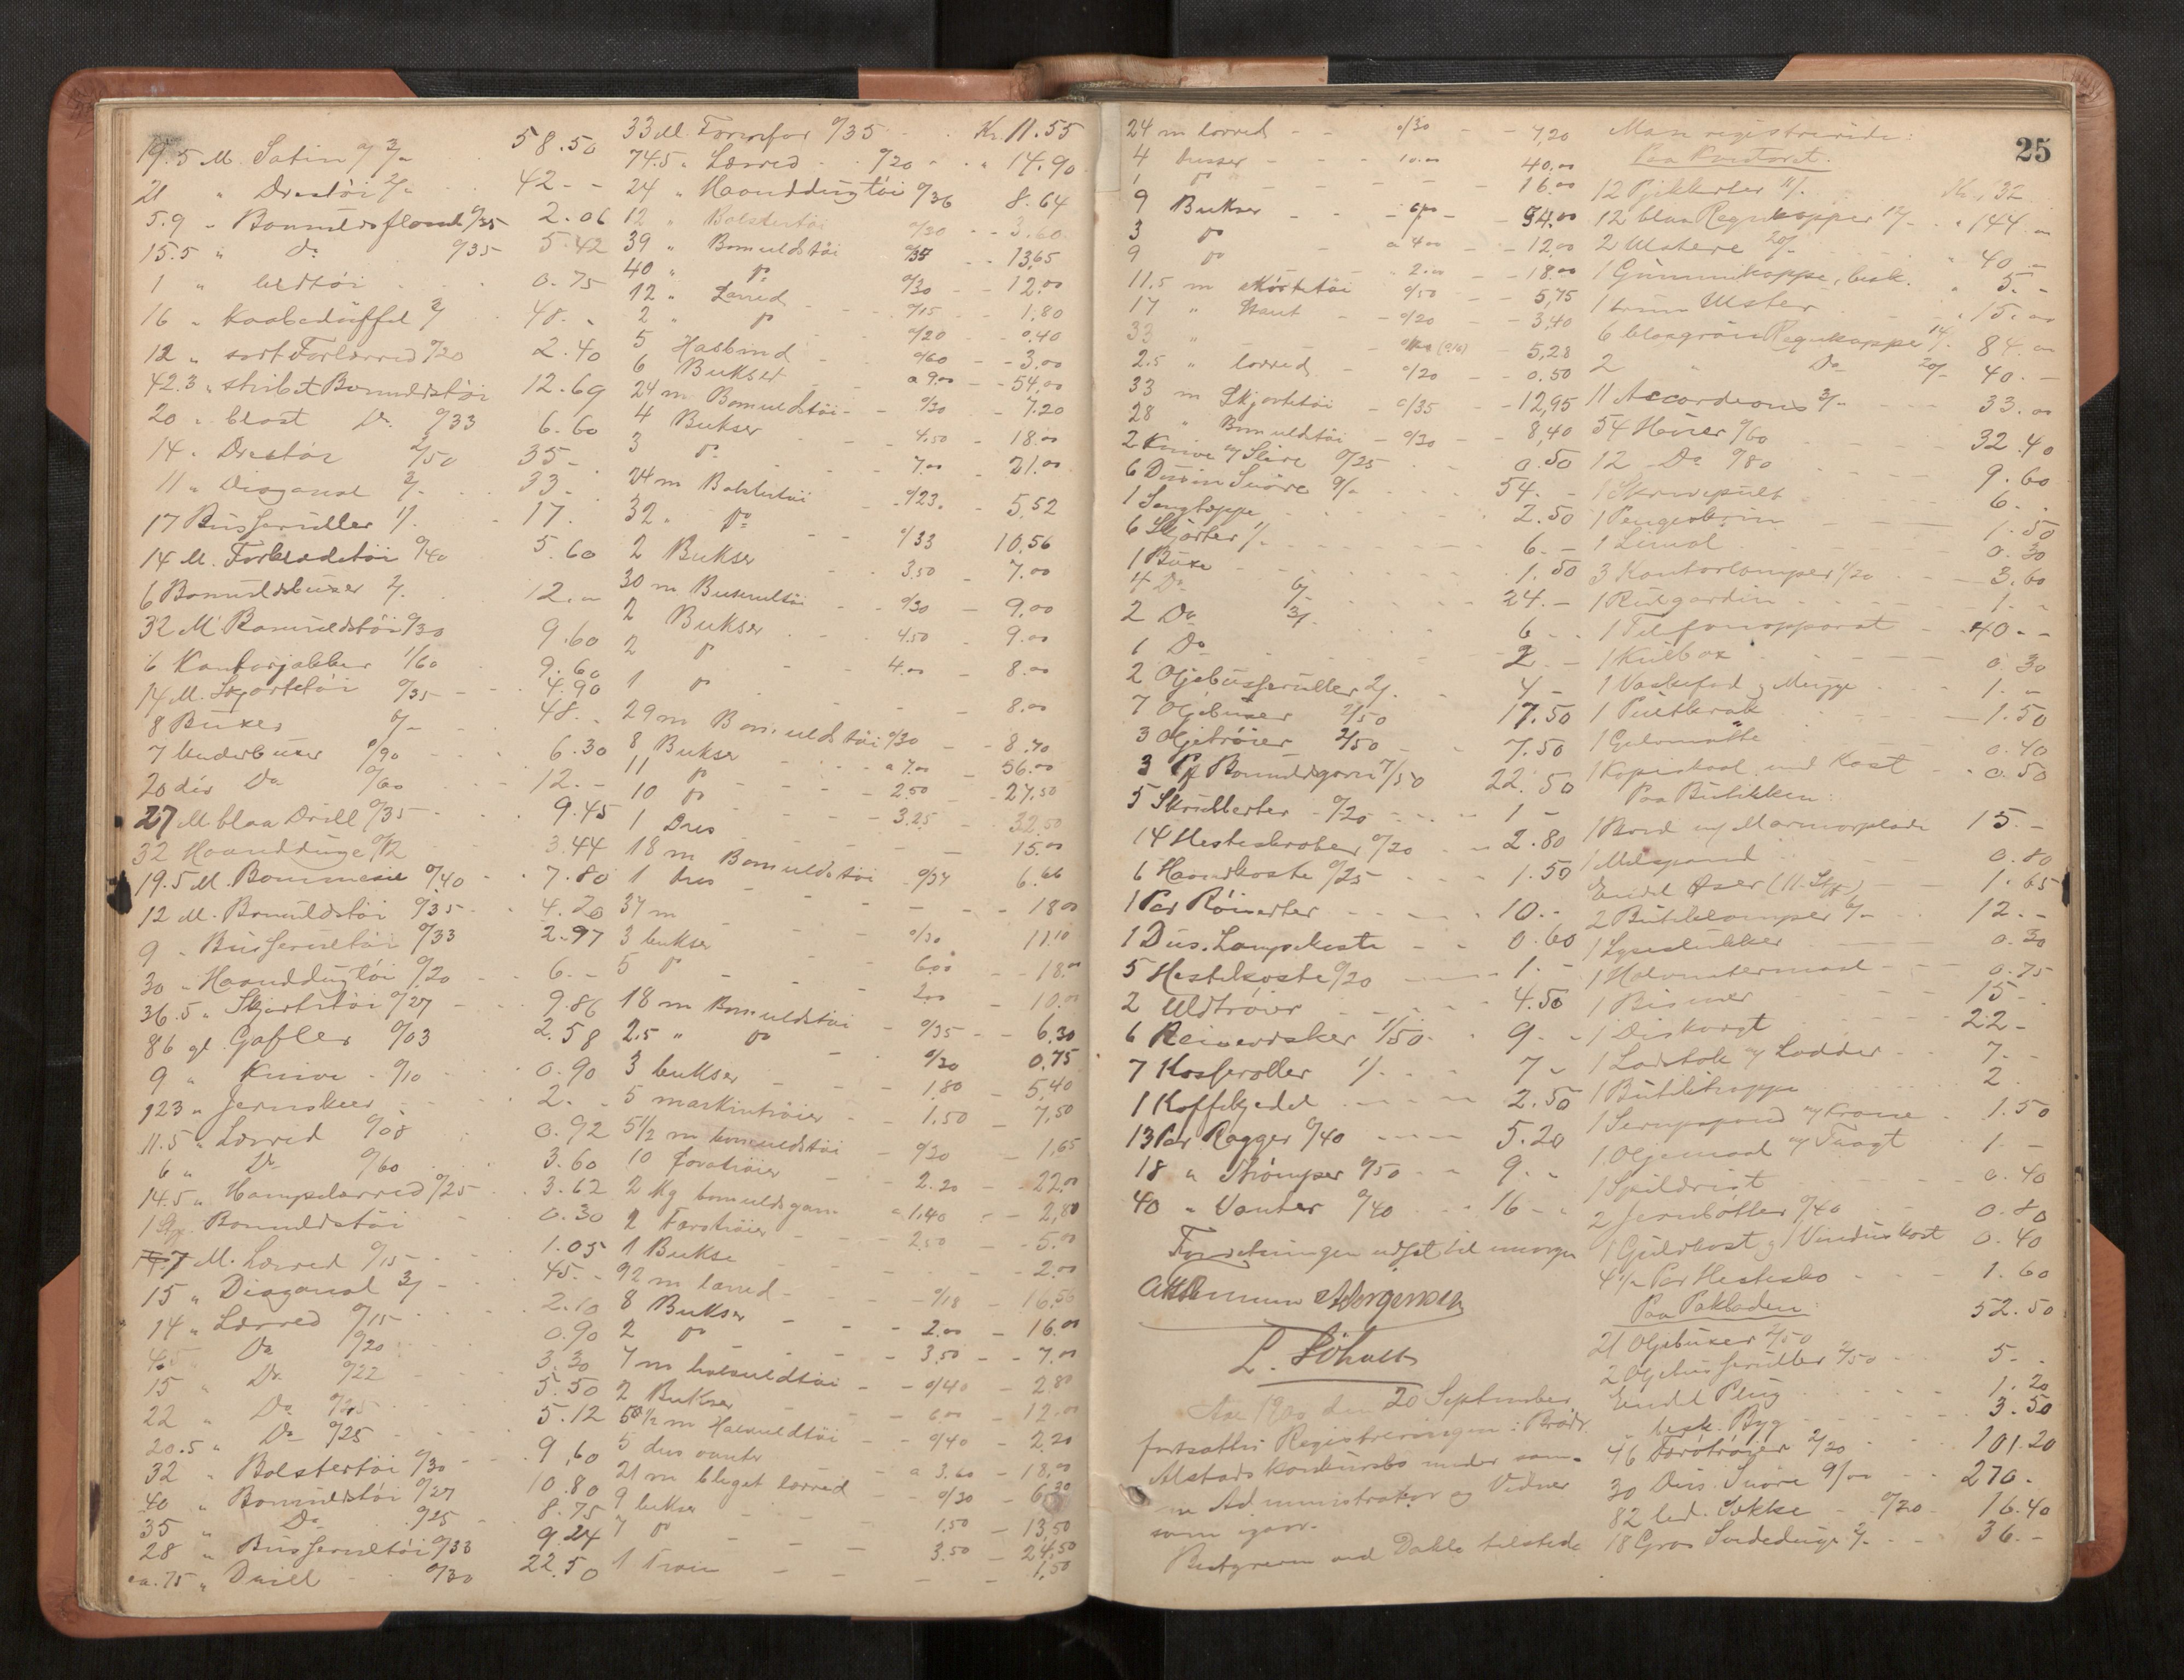 19.5 M. Satin a/ 3/- 58.50
21 " Drestöi 2/- 42 - -
5.9 " Bomuldsflonel 0/35 2.06
15.5 " Do 0/35 5.42
1 " 0.75
16 " Kaabedüffel 3/ 48. -
12 " sort Forlærred 0/20 2.40
42.3 " stribet Bomuldstöi 12.69
20 " blaat Do 0/33 6.60
14 " Drestöi 2/50 35 -
11 " Diagonal 3/- 33 -
17 Busseruller 1/. 17.
14 M. Forkledetöi 0/40 5.60
6 Bomuldsbuxer 2/. 12. -
32 M Bomuldstöi 0/30 9.60
6 Kontorjakker 1/60 9.60
14 M. Skjortetöi 0/35 4.90
8 Buxer 6/- 48. -
7 Underbuxer 0/90 6.30
20 div Do 0/60 12. -
27 M. blaa Drill 0/35 9.45
32 Haandduge 0/12 3.44
19.5 M. Bommesie 0/40 7.80
12 M. Bomuldstöi 0/35 4.20
9 " Busserultöi 0/33 2.97
30 " Haanddugtöi 0/20 6. -
36.5 " Skjortetöi 0/27 9.86
86 gl. Gafler 0/03 2.58
9 " Knive 0/10 0.90
123 " Jernskeer 2. -
11.5 " Lærred 0/08 0.92
6 " Do 0/60 3.60
14.5 " Hampelærred 0/25 3.62
1 Stk. Bomuldstöi 0.30
7 M. Lærred 0/15 1.05
15 " Diagonal 3/ 45. -
14 " Lærred 0/15 2.10
4.5 " Do 0/20 0.90
15 " Do 0/22 3.30
22 " Do 0/25 5.50
20.5 " Do 0/25 5.12
32 " Bolstertöi 0/30 9,60
40 " Bomuldstöi 0/27 10.80
35 " Do 0/25 8.75
28 " Busserultöi 0/33 9.24
ca. 75 " Drill 0/30 22.50
33 M. 0/35 Kr. 11.55
74.5 " Lærred 0/20 " 14.90
24 " Haanddugtöi 0/36 8.64
12 " Bolstertöi 0/30 3.60
39 " Bomuldstöi 0/35 13,65
40 " do 0/30 12.00
12 " Lærred 0/15 1,80
2 " do 0/20 0.40
5 Halsbind 0/60 3.00
6 Bukser a 9.00 54,00
24 m Bomuldstöi 0/30 7.20
4 Bukser 4.50 18.00
3 do 7.00 21.00
24 m Bolstertöi 0/23. 5,52
32 " do 0/33 10,56
2 Bukser 3.50 7.00
30 m Busserultöi 0/30 9.00
2 Bukser 4.50 9.00
2 do 4.00 8.00
1 do 8.00
29 m Bomuldstöi 0/30 8.70
8 Bukser a 7.00 56.00
11 do 2.50 27,50
10 do 3.25 32,50
1 Dres 15.00
18 m Bomuldstöi 0/37 6.66
1 dres 18.00
37 m 0/30 11.10
3 bukser 6.00 18.00
5 do 2.00 10.00
18 m Bomuldstöi 0/35 6,30
2.5 " do 0/30 0.75
3 bukser 1.80 5,40
5 maskintröier 1.50 7,50
5 1/2 m bomuldstöi 0/30 1,65
10 Færötröier 2.20 22.00
2 kg bomuldsgarn a 1.40 2,80
2 Færötröier 2.50 5.00
1 Bukse 2.00
92 m lærred 0/18 16,56
8 Bukser 2.00 16.00
2 do 3.50 7.00
7 m halvuldtöi 0/40 2.80
2 Bukser 6.00 12.00
5 1/2 m Halvuldtöi 0/40 2.20
5 dus vanter a 3.60 18.00
21 m bleget lærred 0/30 6.30
9 bukser 1.50 13,50
7 do 3.50 24,50
1 Tröie 1,50
25
24 m lærred 0/30 7,20
4 busser 10.00 40.00
1 do 16.00
9 Bukser 6.00 54.00
3 do a 4.00 12,00
9 do 2.00 18.00
11.5 m skörtetöi 0/50 5,75
17 " Stout 0/20 3,40
33 " 5,28
2.5 " lærred 0/20 0.50
33 m Skjortetöi 0/35 12,95
28 " Bomuldstöi 0/30 8,40
2 Knive m/ Slire 0/25 0.50
6 Dusin Snöre 9/- 54. -
1 Sengtæppe 2.50
6 Skjorter 1/- 6. -
1 Buxe 1.50
4 Do 6/ 24. -
2 Do 3/ 6 -
1 Do 2 -
2 Oljebusseruller 2/. 4 -
7 Oljebuxer 2/50 17.50
3 Oljetröier 2/50 7.50
3 Pk Bomuldsgarn 7/50 22.50
5 Skrubberter 0/20 1 -
14 Hesteskraber 0/20 2.80
6 Haandkoste 0/25 1.50
1 Par 10. -
1 Dus. Lampekoste 0.60
5 Hestekoste 0/20 1. -
2 Uldtröier 4.50
6 1/50 9. -
7 Kasseroller 1/. 7 -
1 Kaffekjedel 2.50
13 Par Ragger 0/40 5.20
18 " Strömper 0/50 9. -
40 " Vanter 0/40 16 -
Forretningen udsat til imorgen
Jörgensen
L. Söholt
Aar 1900 den 20 September
fortsattes Registreringen i Brödr.
Alstads Konkursbo under sam-
me Administrator og Vidner
som igaar.
Butgreven ved Dahle tilstede
Man registrerede:
Paa Kontoret.
12 11/. Kr. 132
12 blaa Regnkapper 12/- " 144. -
2 Ulstere 20/- " 40 -
1 Gummikappe, besk. " 5. -
1 brun Ulster " 15. -
6 blaagrön Regnkapper 14/. 84. -
2 " Do 20/- 40. -
11 Accordeons 3/- 33. -
54 Huer 0/60 32.40
12 Do 0/80 9.60
1 Skrivepult 6. -
1 Pengeskrin 1.50
1 Linial 0.30
3 Kontorlamper 1/20 3.60
1 Rulgardin 1. -
1 Telefonapparat 40 - -
1 Kulbox 0.30
1 Vaskefad og Mugge 1. -
1 Pultkrak 1.50
1 Gulvmatte 0.40
1 Kopiskaal med Kost 0.50
Paa Butikken:
1 Bord m/ Marmorplade 15. -
1 0.80
Endel Öser (11 Stk) 1.65
2 Butiklamper 6/- 12. -
1 Lyseslukker 0.30
1 Halvmetermaal 0.75
1 Bismer 15 -
1 Diskvægt 22 -
1 Ladstok m/ Lodder 7. -
1 Butiktrappe 2.
1 Serupspand m/ Krane 1.50
1 Oljemaal m/ Tragt 1. -
1 Spildrist 0.40
2 Jernbötter 0/40 0.80
1 Gulvkost og 1 Vinduskost 0.40
4 Par Hestesko 1.60
Paa Pakboden:
21 Oljebuxer 2/50 52.50
2 Oljebusseruller 2/50 5. -
Endel Plug 1.20
" besk. Byg 3.50
46 Færötröier 2/20 101.20
30 Dus. Snöre 9/00 270 -
82 led. Sekke 0/20 16.40
18 Gros 2/- 36. -